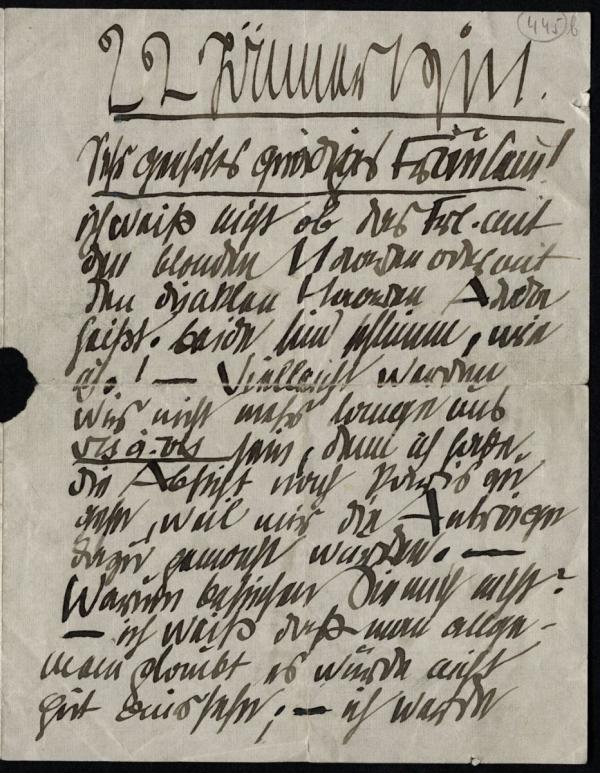 445b
22 Jänner 1911.
Sehr geehrtes gnädiges Fräulein!
ich weiß nicht ob das Frl. mit
den blonden Haaren oder mit
den dunklen Haaren Adele
heißt. beide sind schlimm, wie
ich! — Vielleicht werden
wir nicht mehr lange uns
vis à vis sein, denn ich habe
die Absicht nach Paris zu
gehen, weil mir die Anträge
dazu gemacht wurden. —
Warum besuchen Sie mich nicht?
— ich weiß daß man allge-
mein glaubt es würde nicht
gut aussehen; — ich werde